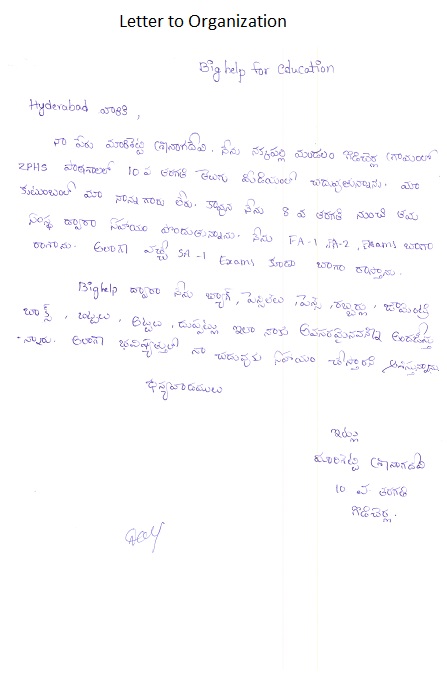 Letter to Organization
Big help for Education
Hyderabad వారికి,
నా పేరు మారిశెట్టి నాగదేవి. నేను నక్కపల్లి మండలం గొడిచెర్ల గ్రామంలో
ZPHS పాఠశాలలో 10 వ తరగతి తెలుగు మీడియంలో చదువుతున్నాను. మా
కుటుంబంలో మా నాన్నగారు లేరు. కావున నేను 8 వ తరగతి నుంచి తమ
సంస్థ ద్వారా సహాయం పొందుతున్నాను. నేను FA-1 FA-2, Exams బాగా
రాశాను. అలాగే వచ్చే SA-1 Exams కూడా బాగా రాస్తాను.
Bighelp ద్వారా నేను బ్యాగ్, పెన్సిలు, పెన్స్, రబ్బర్లు, జామెంట్రి
బాక్స్, బట్టలు, అట్టలు, దుప్పట్లు ఇలా నాకు అవసరమైనవన్నీ అందిస్తు
-న్నారు. అలాగే భవిష్యత్తులో నా చదువుకు సహాయం చేస్తారని ఆశిస్తున్నాను
ధన్యవాదములు
ఇట్లు
మారిశెట్టి నాగదేవి
10 వ తరగతి
గొడిచెర్ల.